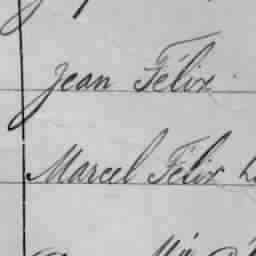 Jean Félix
Marcel Félix